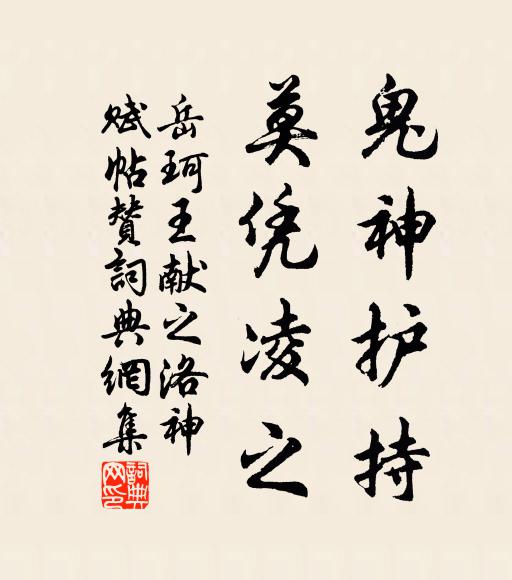 鬼神护持
莫凭凌之
岳珂王献之洛神
赋帖赞詞典網集
詞典网印